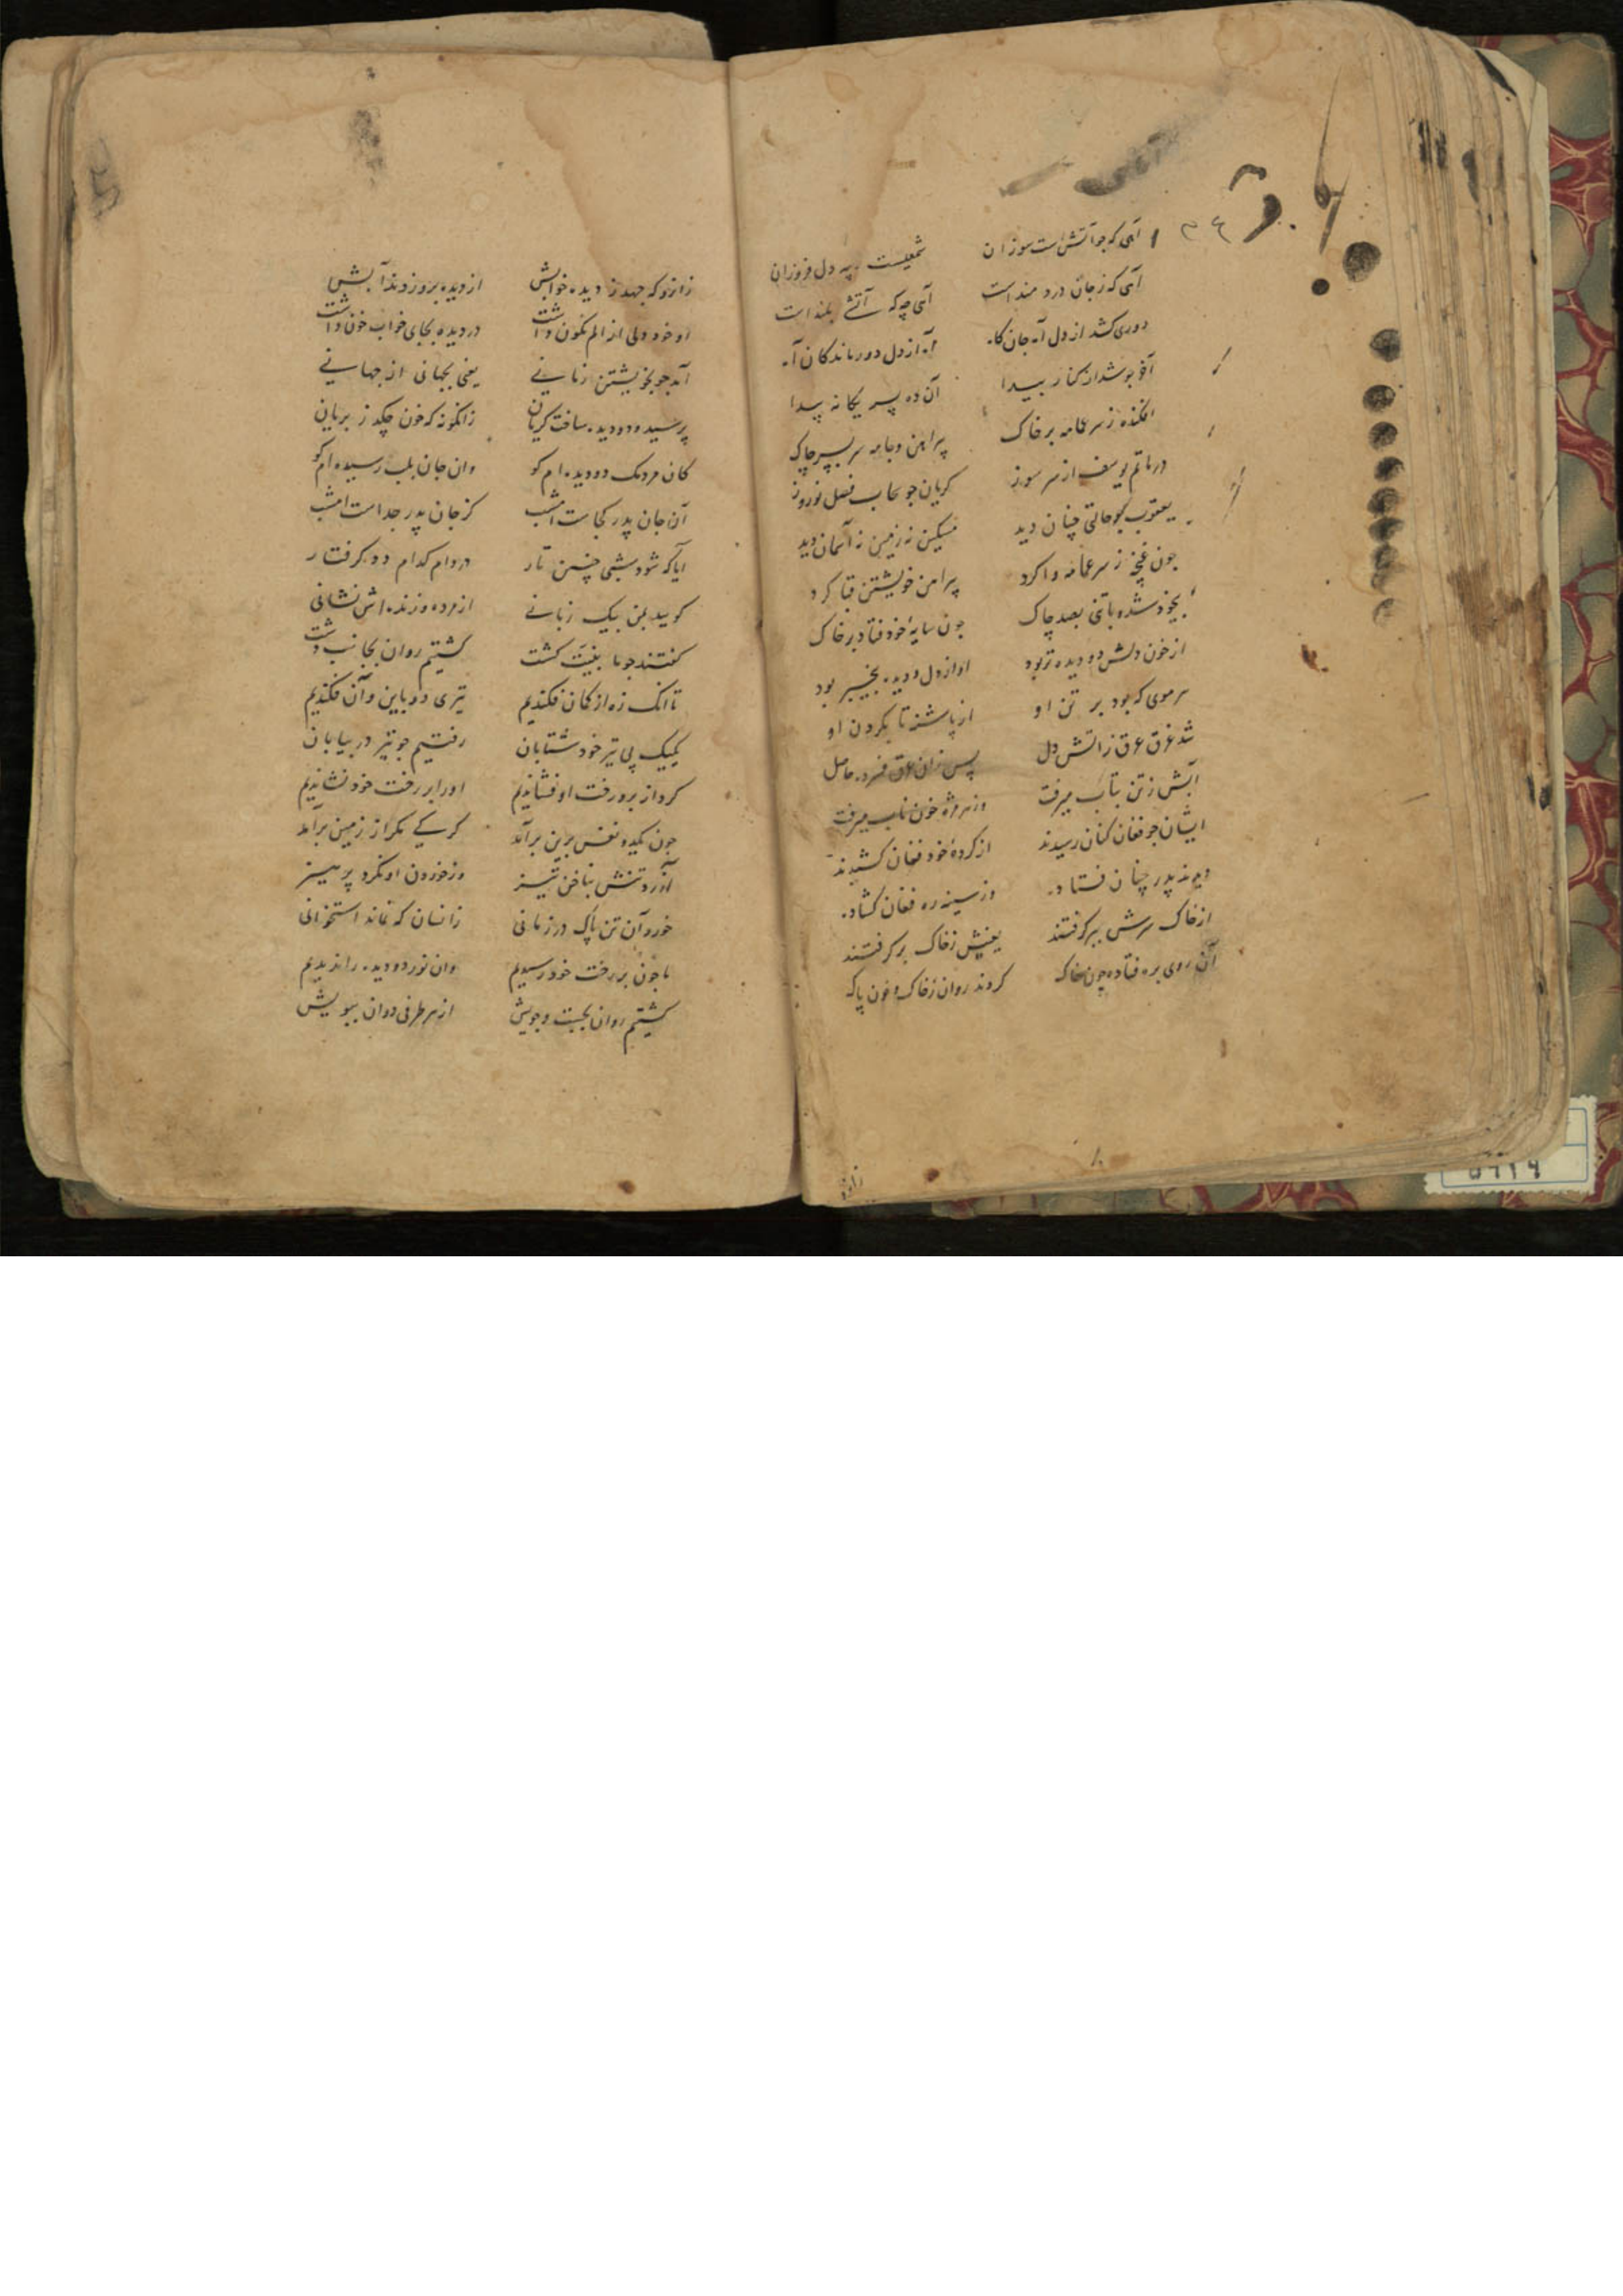 آهی که جو آتش است سوزان شمعیست به دل فروزان
آهی که ز جان دردمند است آهی چه که آتشی بلند است
دوری کشد از دل آه جان کاه آه از دل دورماندکان آه
آخر جو شد از کنار پیدا آن ده پسر یکانه پیدا
افکنده ز سر عمامه بر خاک پیراهن و جامه سربسر چاک
در ماتم یوسف از سر سوز کریان جو سحاب فصل نوروز
یعقوب جو حالتی چنان دید مسکین نه زمین نه آسمان دید
جون غنچه ز سر عمامه وا کرد پیراهن خویشتن قبا کرد
بیخود شده با تنی بصد چاک جون سایهٔ خود فتاد بر خاک
از خون دلش دو دیده تر بود او از دل و دیده بیخبر بود
هر موی که بود بر تن او از پا شده تا بکردن او
شد غرق عرق ز آتش دل پس زان عرق فسرده حاصل
آبش ز تن بتاب میرفت وز هر مژه خون ناب میرفت
ایشان جو فغان کنان رسیدند از کردهٔ خود فغان کشیدند
دیدند پدر چنان فتاده وز سینه ره فغان کشاده
از خاک سرش ببر کرفتند یعنیش ز خاک بر کرفتند
آن روی بره فتاده چون خاک کردند روان ز خاک و خون پاک
زانرو
زانرو که جهد ز دیده خوابش از دیده برو زدند آبش
او خود دلی از الم نکون داشت در دیده بجای خواب خون داشت
آمد جو بخویشتن زمانی یعنی بجهانی از جهانی
پرسید و دو دیده ساخت کریان زانکونه که خون چکد ز بریان
کان مردمک دو دیده ام کو وان جان بلب رسیده ام کو
آن جان پدر کجاست امشب کز جان پدر جداست امشب
آیا که شود شبی چنین تار در دام کدام دد کرفتار
کویید بمن بیک زبانی از مرده و زنده اش نشانی
کفتند جو ما بنیت کشت کشتیم روان بجانب دشت
تا آنک زه از کمان فکندیم تیری دو باین و آن فکندیم
یکیک پی تیر خود شتابان رفتیم جو تیر در بیابان
کرد از برو رخت او فشاندیم او را بر رخت خود نشاندیم
جون یکدو نفس برین برآمد کرکی مکر از زمین برآمد
آزرد تنش بناخن تیز وز خوردن او نکرد پرهیز
خورد آن تن پاک در زمانی زانسان که نماند استخوانی
ما جون بر رخت خود رسیدیم وان نور دو دیده را ندیدیم
کشتیم روان بجست و جویش از هر طرفی دوان ببویش
۵۹۱۹